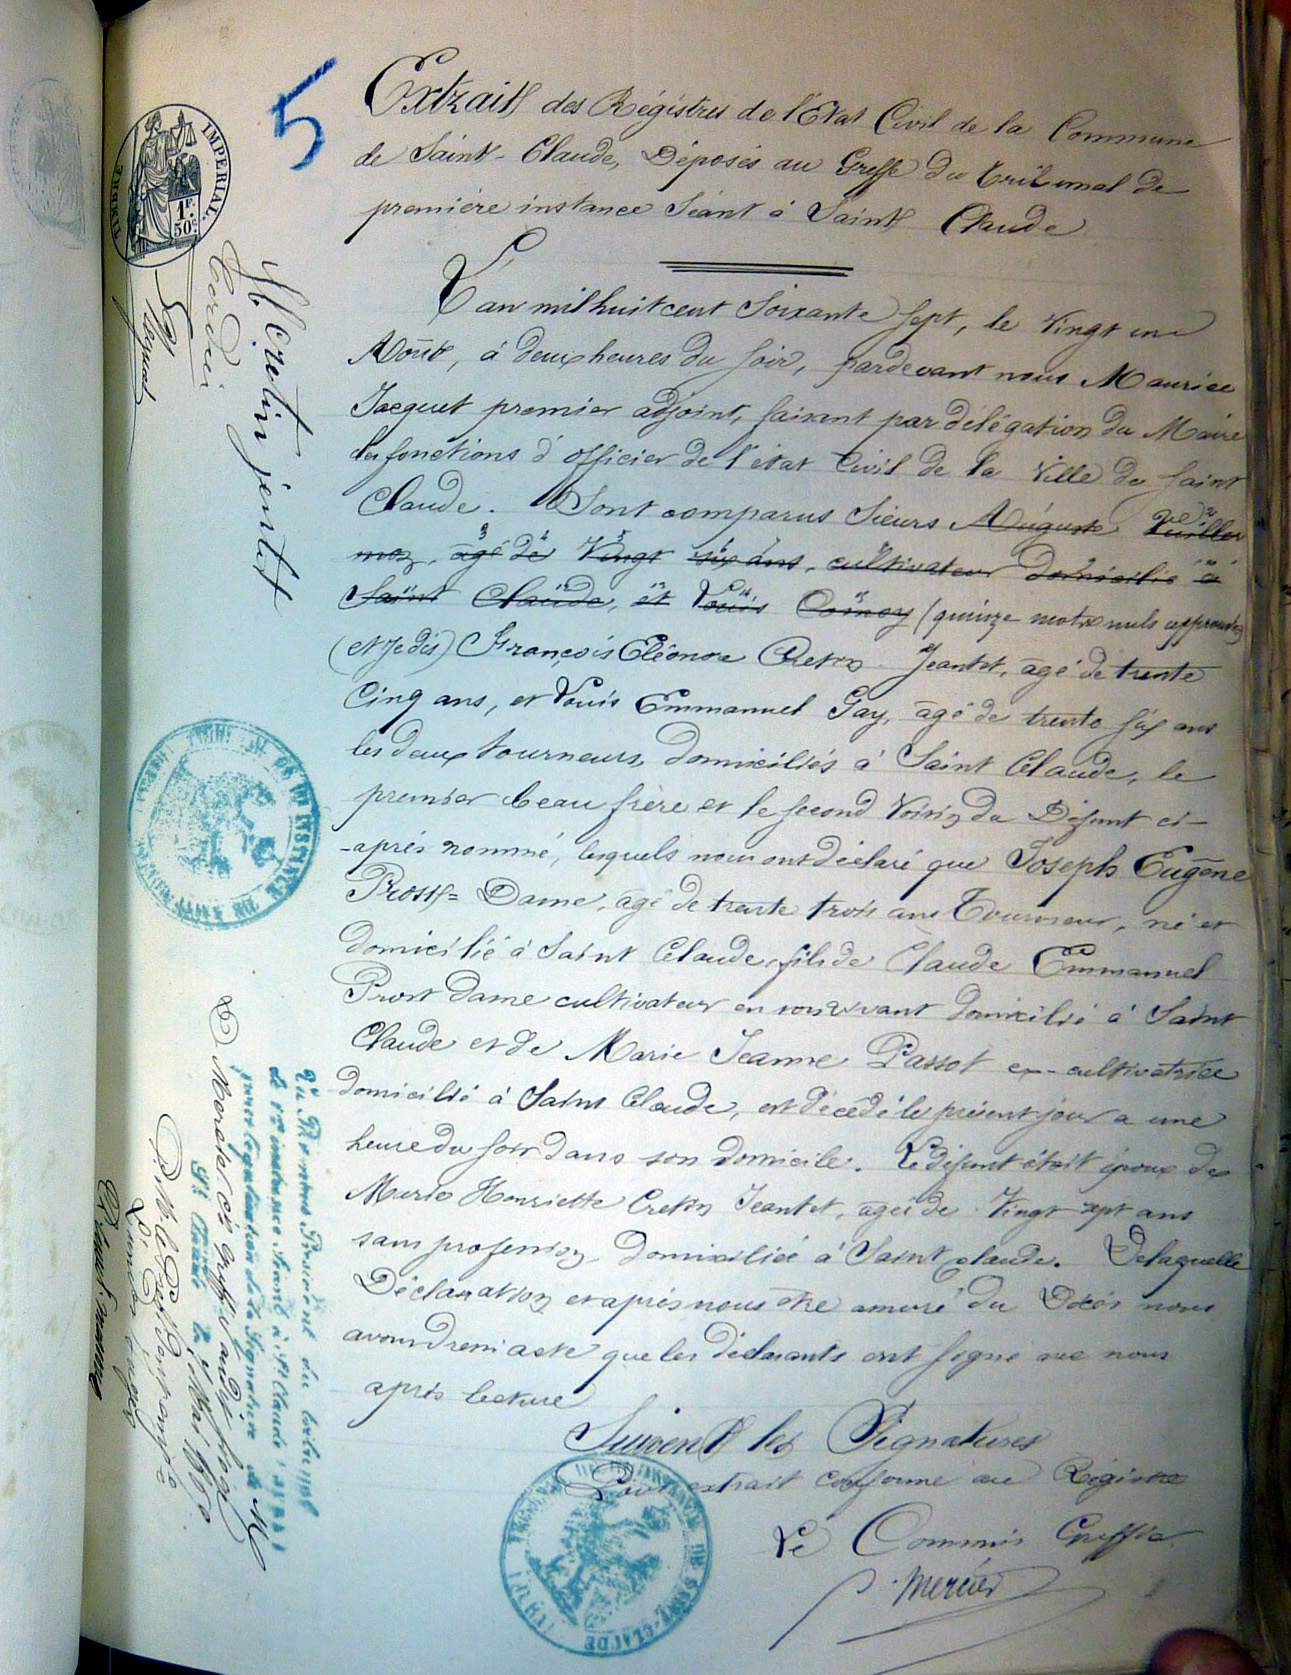 5
Extrait des Régistres de l'Etat Civil de la Commune
de Saint-Claude, Déposés au Greffe du tribunal de
première instance Séant à Saint Claude
L'an mil huit cent soixante sept, le vingt un
Août, à deux heures du soir, pardevant nous Maurice
Jacquet premier adjoint, faisant par délégation du Maire
les fonctions d'officier de l'état Civil de la Ville de Saint
Claude. Sont comparus Sieurs Auguste Vuiller
moz, âgé de Vingt six ans, cultivateur domicilié à
Saint Claude, et Louis (quinze mots nuls approuvés)
(et Je dis) François Eléonore Cretin Jeantet, âgé de trente
Cinq ans, et Louis Emmanuel Gay, âgé de trente six ans
les deux tourneurs, domiciliés à Saint Claude, le
premier beau frère et le second voisin du Défunt ci-
-après nommé, lesquels nous ont déclaré que Joseph Eugène
Prost= Dame, âgé de trente trois ans Tourneur, né et
domicilié à Saint Claude, fils de Claude Emmanuel
Prost Dame cultivateur en son vivant domicilié à Saint
Claude et de Marie Jeanne Passot ex-cultivatrice
domicilié à Saint Claude, est décédé le présent jour a une
heure du soir dans son domicile. Le défunt était époux de
Marie Henriette Cretin Jeantet, âgée de Vingt sept ans
sans profession, domiciliée à Saint Claude. De laquelle
Déclaration et après nous être assuré du Décès nous
avons dressé acte que les déclarants ont signé avec nous
après lecture
Suivent les Signatures
Pour extrait conforme au Régistre
Le Commis Greffier
Mercier
TIMBRE IMPERIAL
1F.
50C.
Cretin jeantet